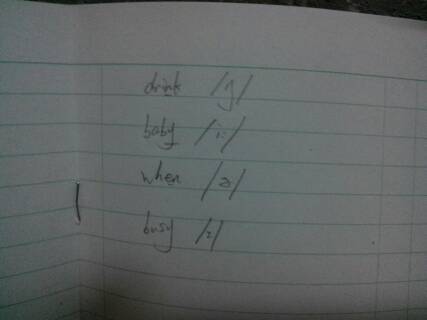 drink /ŋ/
baby /i:/
when /ə/
busy /z/